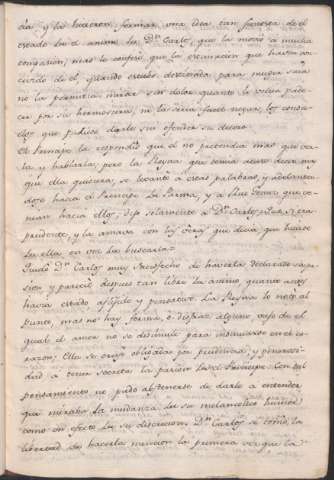 dia, y la hicieron formar una idea tan funesta de el
estado de el animo de Dn. Carlos, que la movió a mucha
compasion; mas le confesó, que la estimacion que havia con-
cevido de el, quando estubo destinada para muger suia
no la permitia mirar sin dolor quanto le podia pade-
cer por su hermosura, ni la devia facil negar, los consue-
los que pudiese darle sin ofender su decoro
El Principe la respondió que el no pretendia mas que ver-
la, y hablarla; pero la Reyna que temia acaso decir mas
que ella quisiera, se levantó a estas palabras, y adelantan-
dose hacia el Principe de Parma, y a otros Señores que ve-
nian hacia ello, dijo solamente a Dn. Carlos, que si era
prudente, y la amava con las veras que decia que huiese
de ella en vez de buscarla
Quedó Dn. Carlos muy satisfecho de haverla declarado su pa-
sion y pareció despues tan libre de animo, quanto antes
havia estado afligido y pensativo. La Reyna lo notó al
punto, mas no hay forma, ó disfraz alguno vajo de el
qual el amor no se disimule para insinuarse en el co-
razon; Ella se creyó obligada por prudencia, y generosi-
dad a tener secreta la pasion de el Principe. Con tal
pensamiento no pudo abstenerse de darle a entender
que miraba la mudanza de su melancolico humor
como un efecto de su discrecion; Dn. Carlos se tomó la
libertad de hacerla mencion la primera vez que la